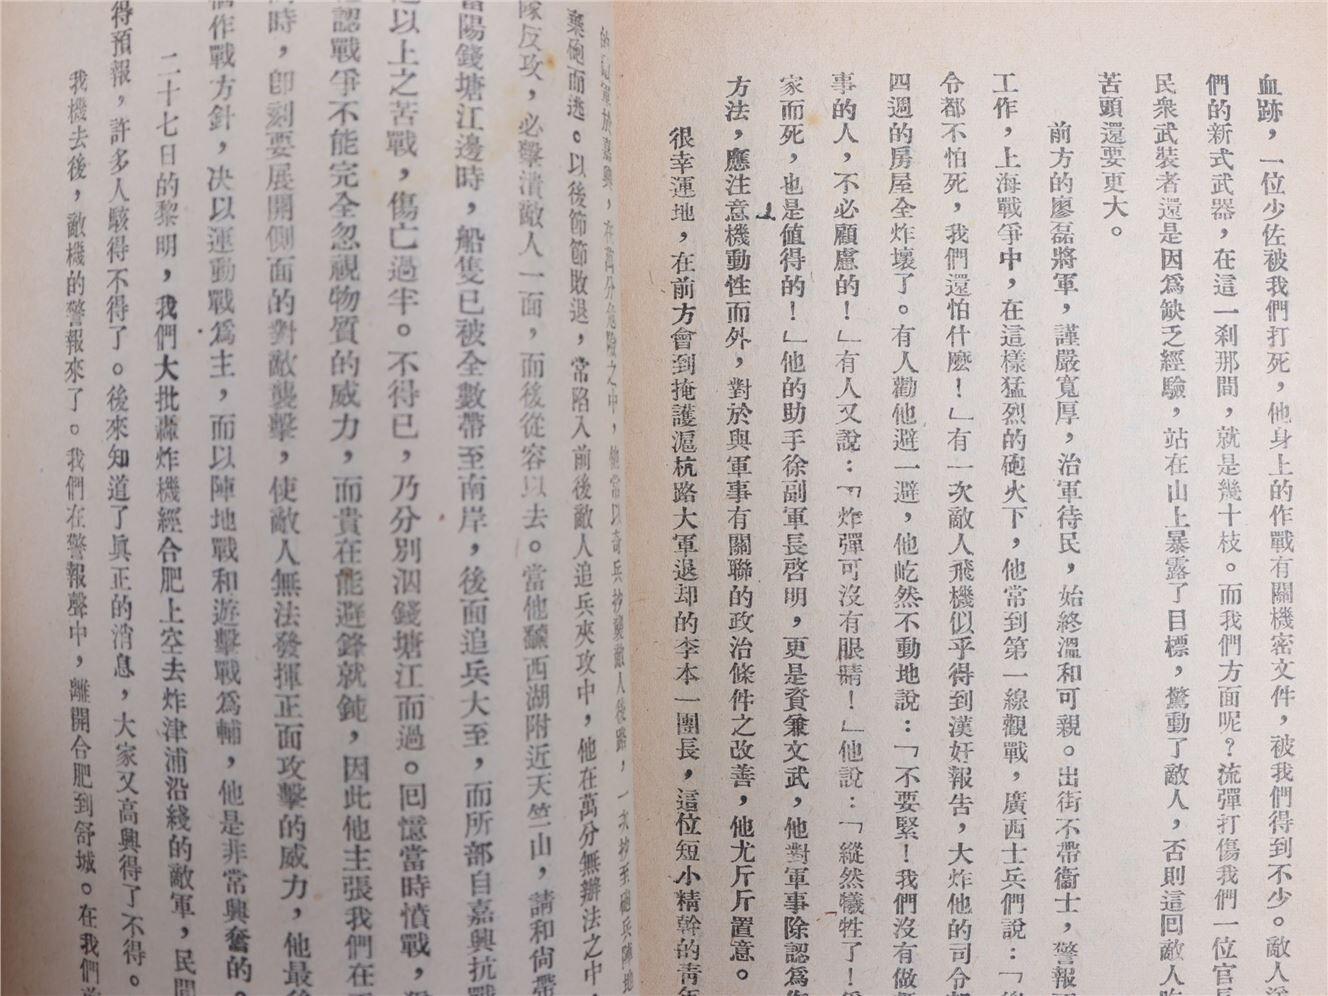 血跡，一位少佐被我們打死，他身上的作戰有關機密文件，被我們得到不少。敵人
們的新式武器，在這一刹那間，就是幾十枝。而我們方面呢？流彈打傷我們一位官
民衆武裝者還是因爲缺乏經驗，站在山上暴露了目標，驚動了敵人，否則這囘敵人
苦頭還要更大。
前方的廖磊將軍，謹嚴寬厚，治軍待民，始終溫和可親。出街不帶衞士，警報
工作，上海戰爭中，在這樣猛烈的砲火下，他常到第一線觀戰，廣西士兵們說：「
令都不怕死，我們還怕什麽！」有一次敵人飛機似乎得到漢奸報告，大炸他的司令
四週的房屋全炸壞了。有人勸他避一避，他屹然不動地說：「不要緊！我們沒有做
事的人，不必顧慮的！」有人又說：「炸彈可沒有眼睛！」他說：「縱然犧牲了！
家而死，也是値得的！」他的助手徐副軍長啓明，更是資兼文武，他對軍事除認爲
方法，應注意機動性而外，對於與軍事有關聯的政治條件之改善，他尤斤斤置意。
很幸運地，在前方會到掩護滬杭路大軍退却的李本一團長，這位短小精幹的靑年
於嘉興，在萬分危險之中，他常以奇兵抄襲敵人後路，一次抄至砲兵陣地
棄砲而逃。以後節節敗退，常陷入前後敵人追兵夾攻中，他在萬分無辦法之中
隊反攻，必擊潰敵人一面，而後從容以去。當他繞西湖附近天竺山，請和尙帶
富陽錢塘江邊時，船隻已被全數帶至南岸，後面追兵大至，而所部自嘉興抗戰
以上之苦戰，傷亡過半。不得已，乃分別泅錢塘江而過。囘憶當時憤戰，
認戰爭不能完全忽視物質的威力，而貴在能避鋒就鈍，因此他主張我們在
時，卽刻要展開側面的對敵襲擊，使敵人無法發揮正面攻擊的威力，他最
個作戰方針，決以運動戰爲主，而以陣地戰和遊擊戰爲輔，他是非常興奮的。
二十七日的黎明，我們大批轟炸機經合肥上空去炸津浦沿綫的敵軍，民間
得預報，許多人駭得不得了。後來知道了眞正的消息，大家又高興得了不得。
我機去後，敵機的警報來了。我們在警報聲中，離開合肥到舒城。在我們